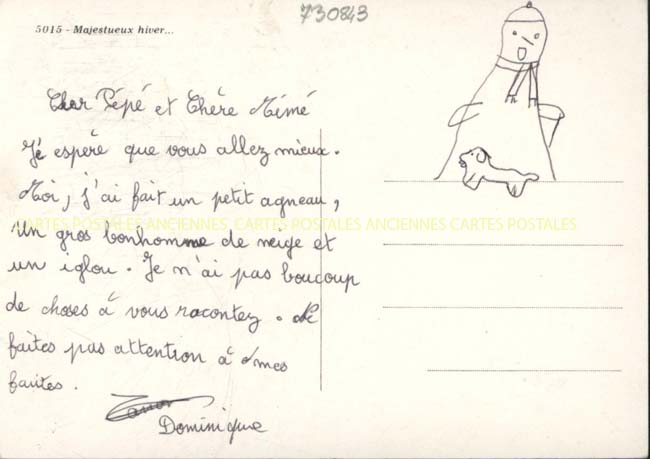 730843
5015 - Majestueux hiver...
Cher Pépé et Chère Mémé
J'é espére que vous allez mieux.
Moi, j'ai fait un petit agneau,
CARTES POSTALES ANCIENNES CARTES POSTALES ANCIENNES CARTES POSTALES
un gros bonhomme de neige et
un iglou. Je n'ai pas boucoup
de choses á vous racontez. Ne
faites pas attention á mes
fautes.
Dominique